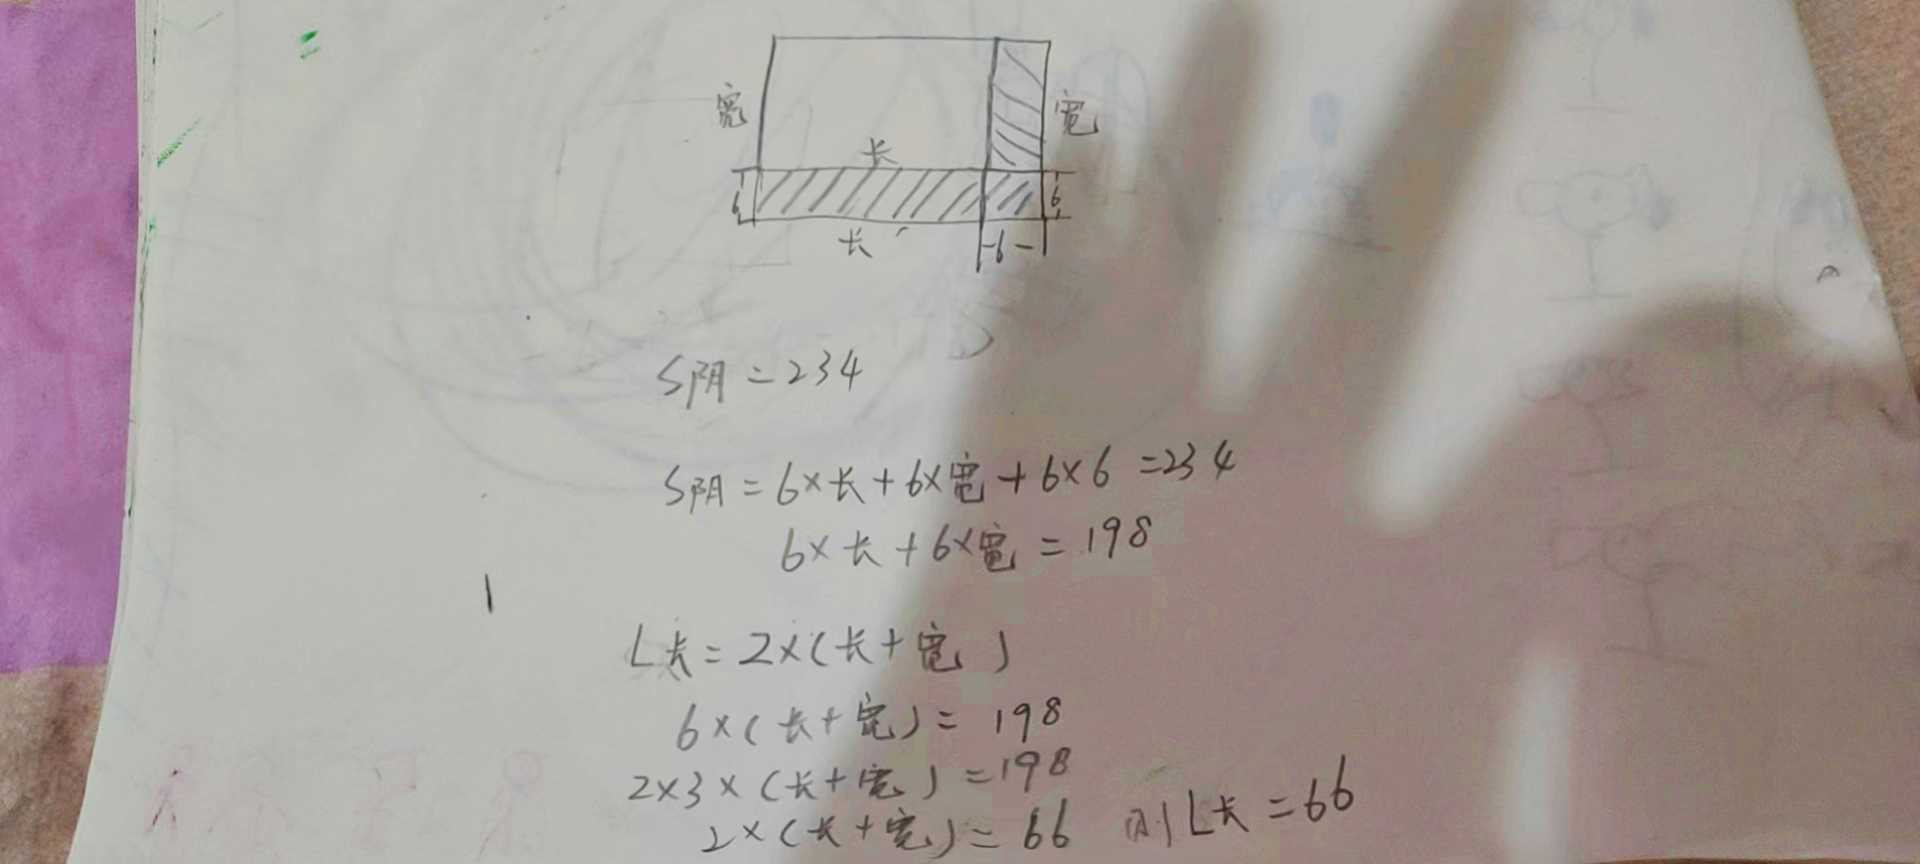 宽 宽
长
6 6
长 6
S阴=234
S阴=6×长+6×宽+6×6=234
6×长+6×宽=198
L长=2×(长+宽)
6×(长+宽)=198
2×3×(长+宽)=198
2×(长+宽)=66 则L长=66